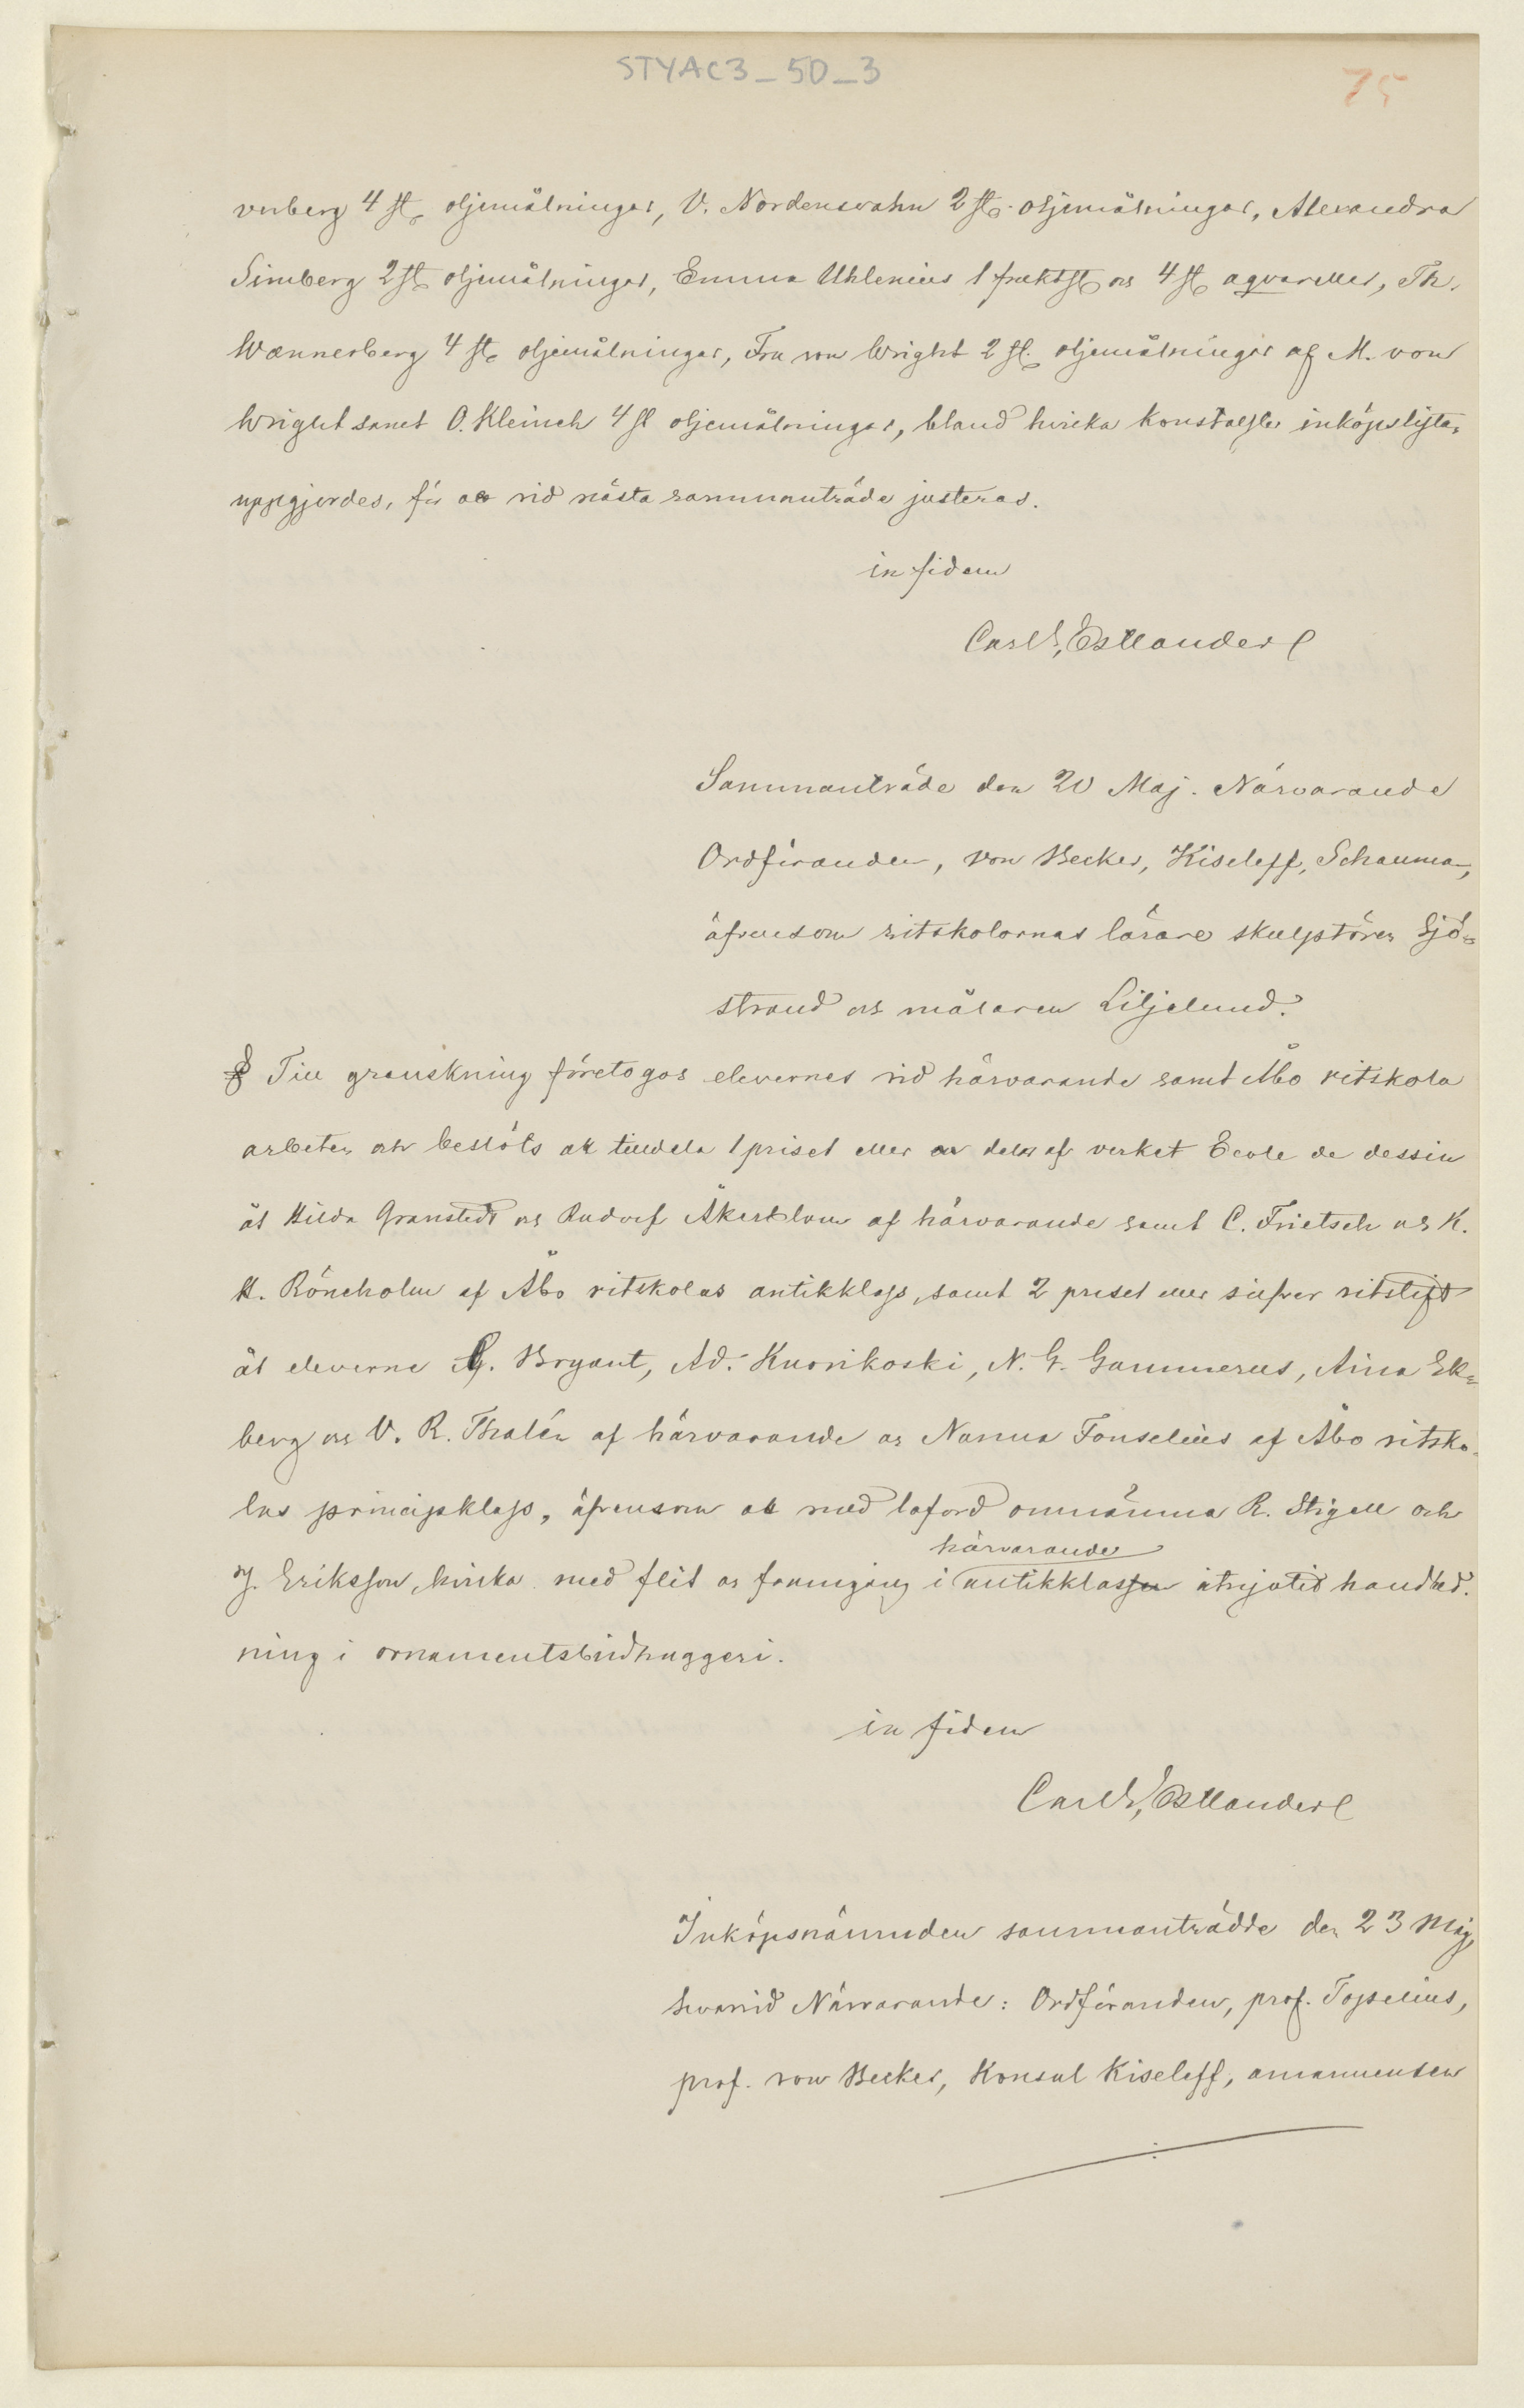 STYAC3_50_3
75
vnberg 4 st. oljemålningar, V. Nordenswahn 2 st. oljemålningar, Alexandra
Simberg 2 st. oljemålningar, Emma Uhlenius 1 fruktst. och 4 st. aqvareller, Th.
Wænnerberg 4 st. oljemålningar, Fru von Wright 2 st. oljemålningar af M. von
Wright samt O. Kleineh 4 st oljemålningar, bland hvilka konstalster inköpslista
uppgjordes, för att vid nästa sammanträde justeras.
in fidem
Carl G. Estlander
Sammanträde den 20 Maj. Närvarande
Ordföranden, von Becker, Kiseleff, Schauman,
äfvensom ritskolornas lärare skulptören Sjö-
strand och målaren Liljelund.
§ Till granskning företogos elevernes vid härvarande samt Åbo ritskola
arbeten och beslöts att tilldela 1 priset eller en del af verket Ecole de dessin
åt Hilda Granstedt och Rudolf Åkerblom af härvarande samt C. Frietsch och K.
H. Rönnholm af Åbo ritskolas antikklass, samt 2 priset eller silfver ritstift
åt eleverne G. Bryant, Ad. Kuorikoski, N. G. Gummerus, Aina Ek-
berg och V. R. Thalén af härvarande och Nanna Fonselius af Åbo ritsko-
las principklass, äfvensom att med loford omnämna R. Stigell och
härvarande
J. Eriksson, hvilka med flit och framgång i antikklassen åtnjutit handled-
ning i ornamentsbildhuggeri.
in fidem
Carl G. Estlander
Inköpsnämnden sammanträdde den 23 Maj,
hvarvid Närvarande: Ordföranden, prof. Topelius,
prof. von Becker, Konsul Kiseleff, amanuensen